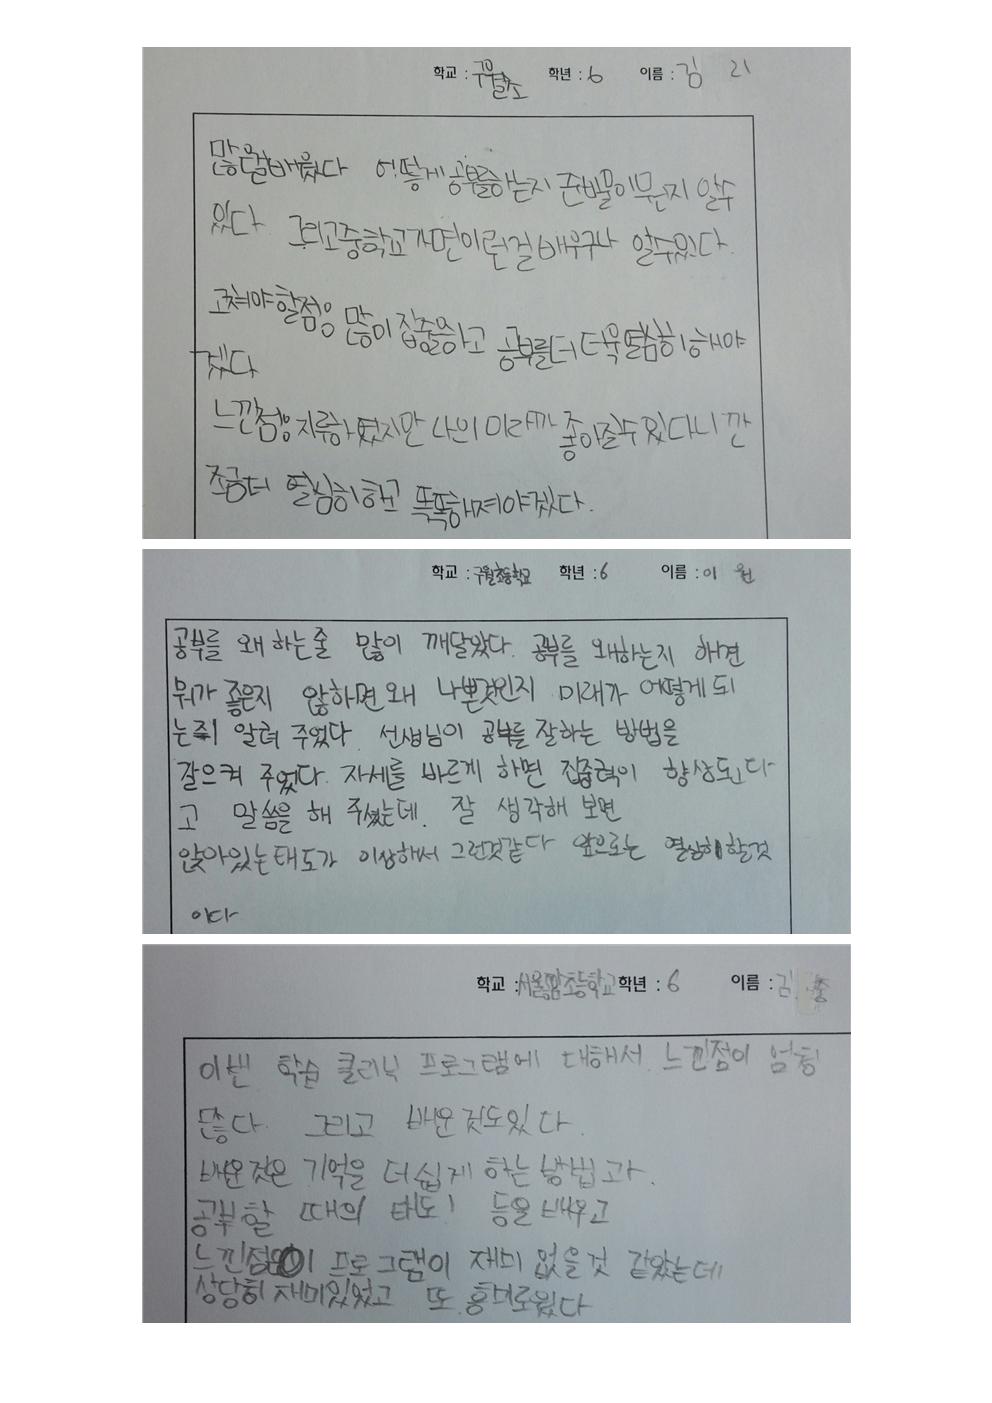 학교 : 구월초 학년 : 6 이름 : 김
많은걸배웠다 어떻게공부를하는지 준비물이무엇지 알수
있다. 그리고중학교가면이런걸배우구나 알수있다.
고쳐야할점은 많이 집중을하고 공부를더 더욱열씸히해야
겠다
느낀점은지루하였지만 나의 미래가 좋아질수있다니깐
조금더 열심히하고 똑똑해져야겠다.
학교 : 구월초등학교 학년 : 6 이름 : 이 원
공부를 왜 하는줄 많이 깨달았다. 공부를 왜하는지 하면
뭐가 좋은지 않하면 왜 나쁜것인지 미래가 어떻게 되
는지 알려 주었다. 선생님이 공부를 잘하는 방법을
갈으켜 주었다. 자세를 바르게 하면 집중력이 향상된다
고 말씀을 해 주셨는데. 잘 생각해 보면
앉아있는태도가 이상해서 그런것같다 앞으로는 열심히할것
이다
학교 : 학년 : 6 이름 : 김
이번 학습 클리닉 프로그램에 대해서 느낀점이 엄청
많다. 그리고 배운것도있다.
배운것은 기억을 더쉽게 하는방법과.
공부할 때의 태도! 등을배우고
느낀점은이 프로그램이 재미 없을것 같았는데
상당히 재미있었고 또 흥미로웠다